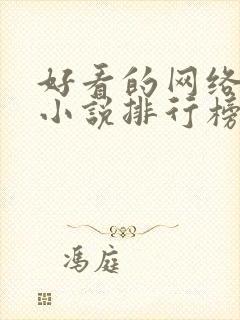 好看的网络
小说排行榜
冯庭